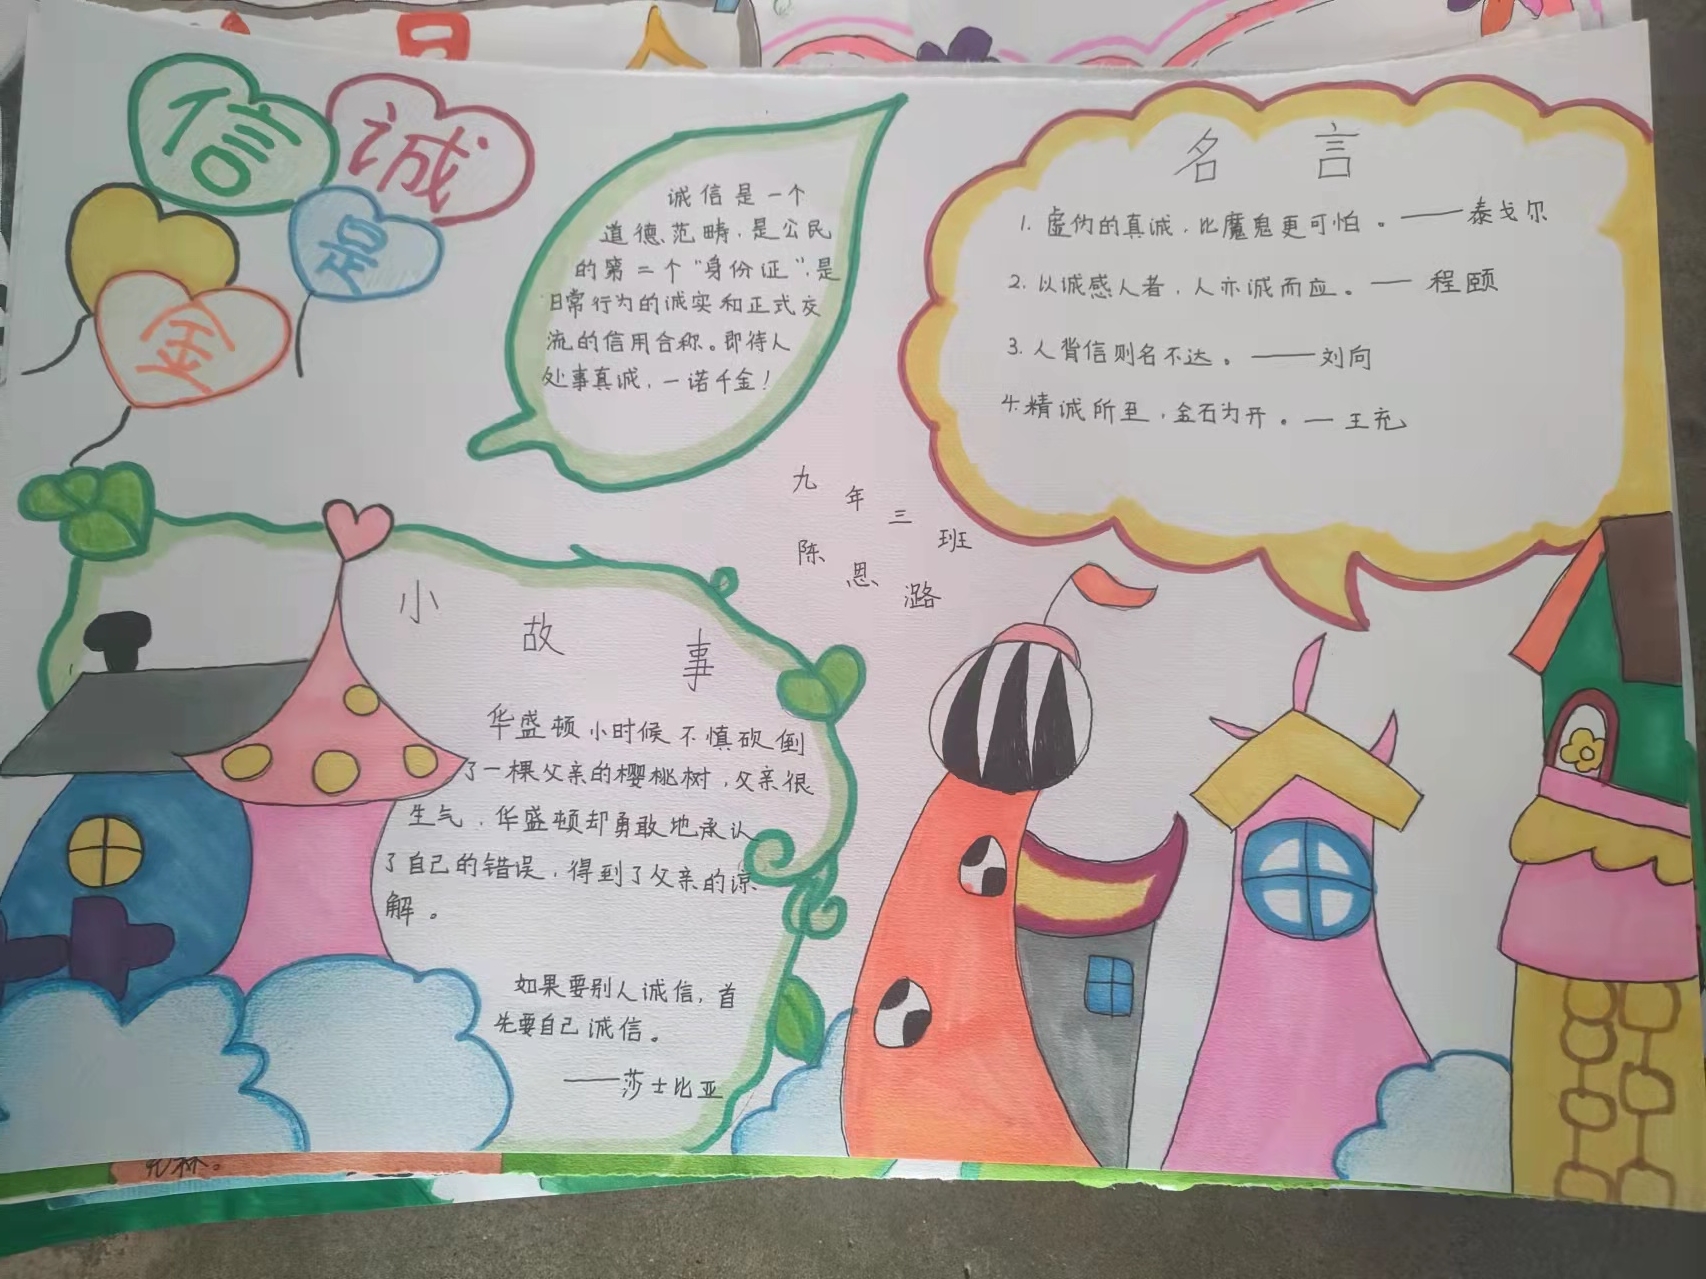 信
诚
是
金
诚信是一个
道德范畴，是公民
的第二个“身份证”，是
日常行为的诚实和正式交
流的信用合称。即待人
处事真诚，一诺千金！
名言
1. 虚伪的真诚，比魔鬼更可怕。——泰戈尔
2. 以诚感人者，人亦诚而应。— 程颐
3. 人背信则名不达。——刘向
4. 精诚所至，金石为开。— 王充
九年三班
陈恩潞
小故事
华盛顿小时候不慎砍倒
了一棵父亲的樱桃树，父亲很
生气，华盛顿却勇敢地承认
了自己的错误，得到了父亲的谅
解。
如果要别人诚信，首
先要自己诚信。
——莎士比亚